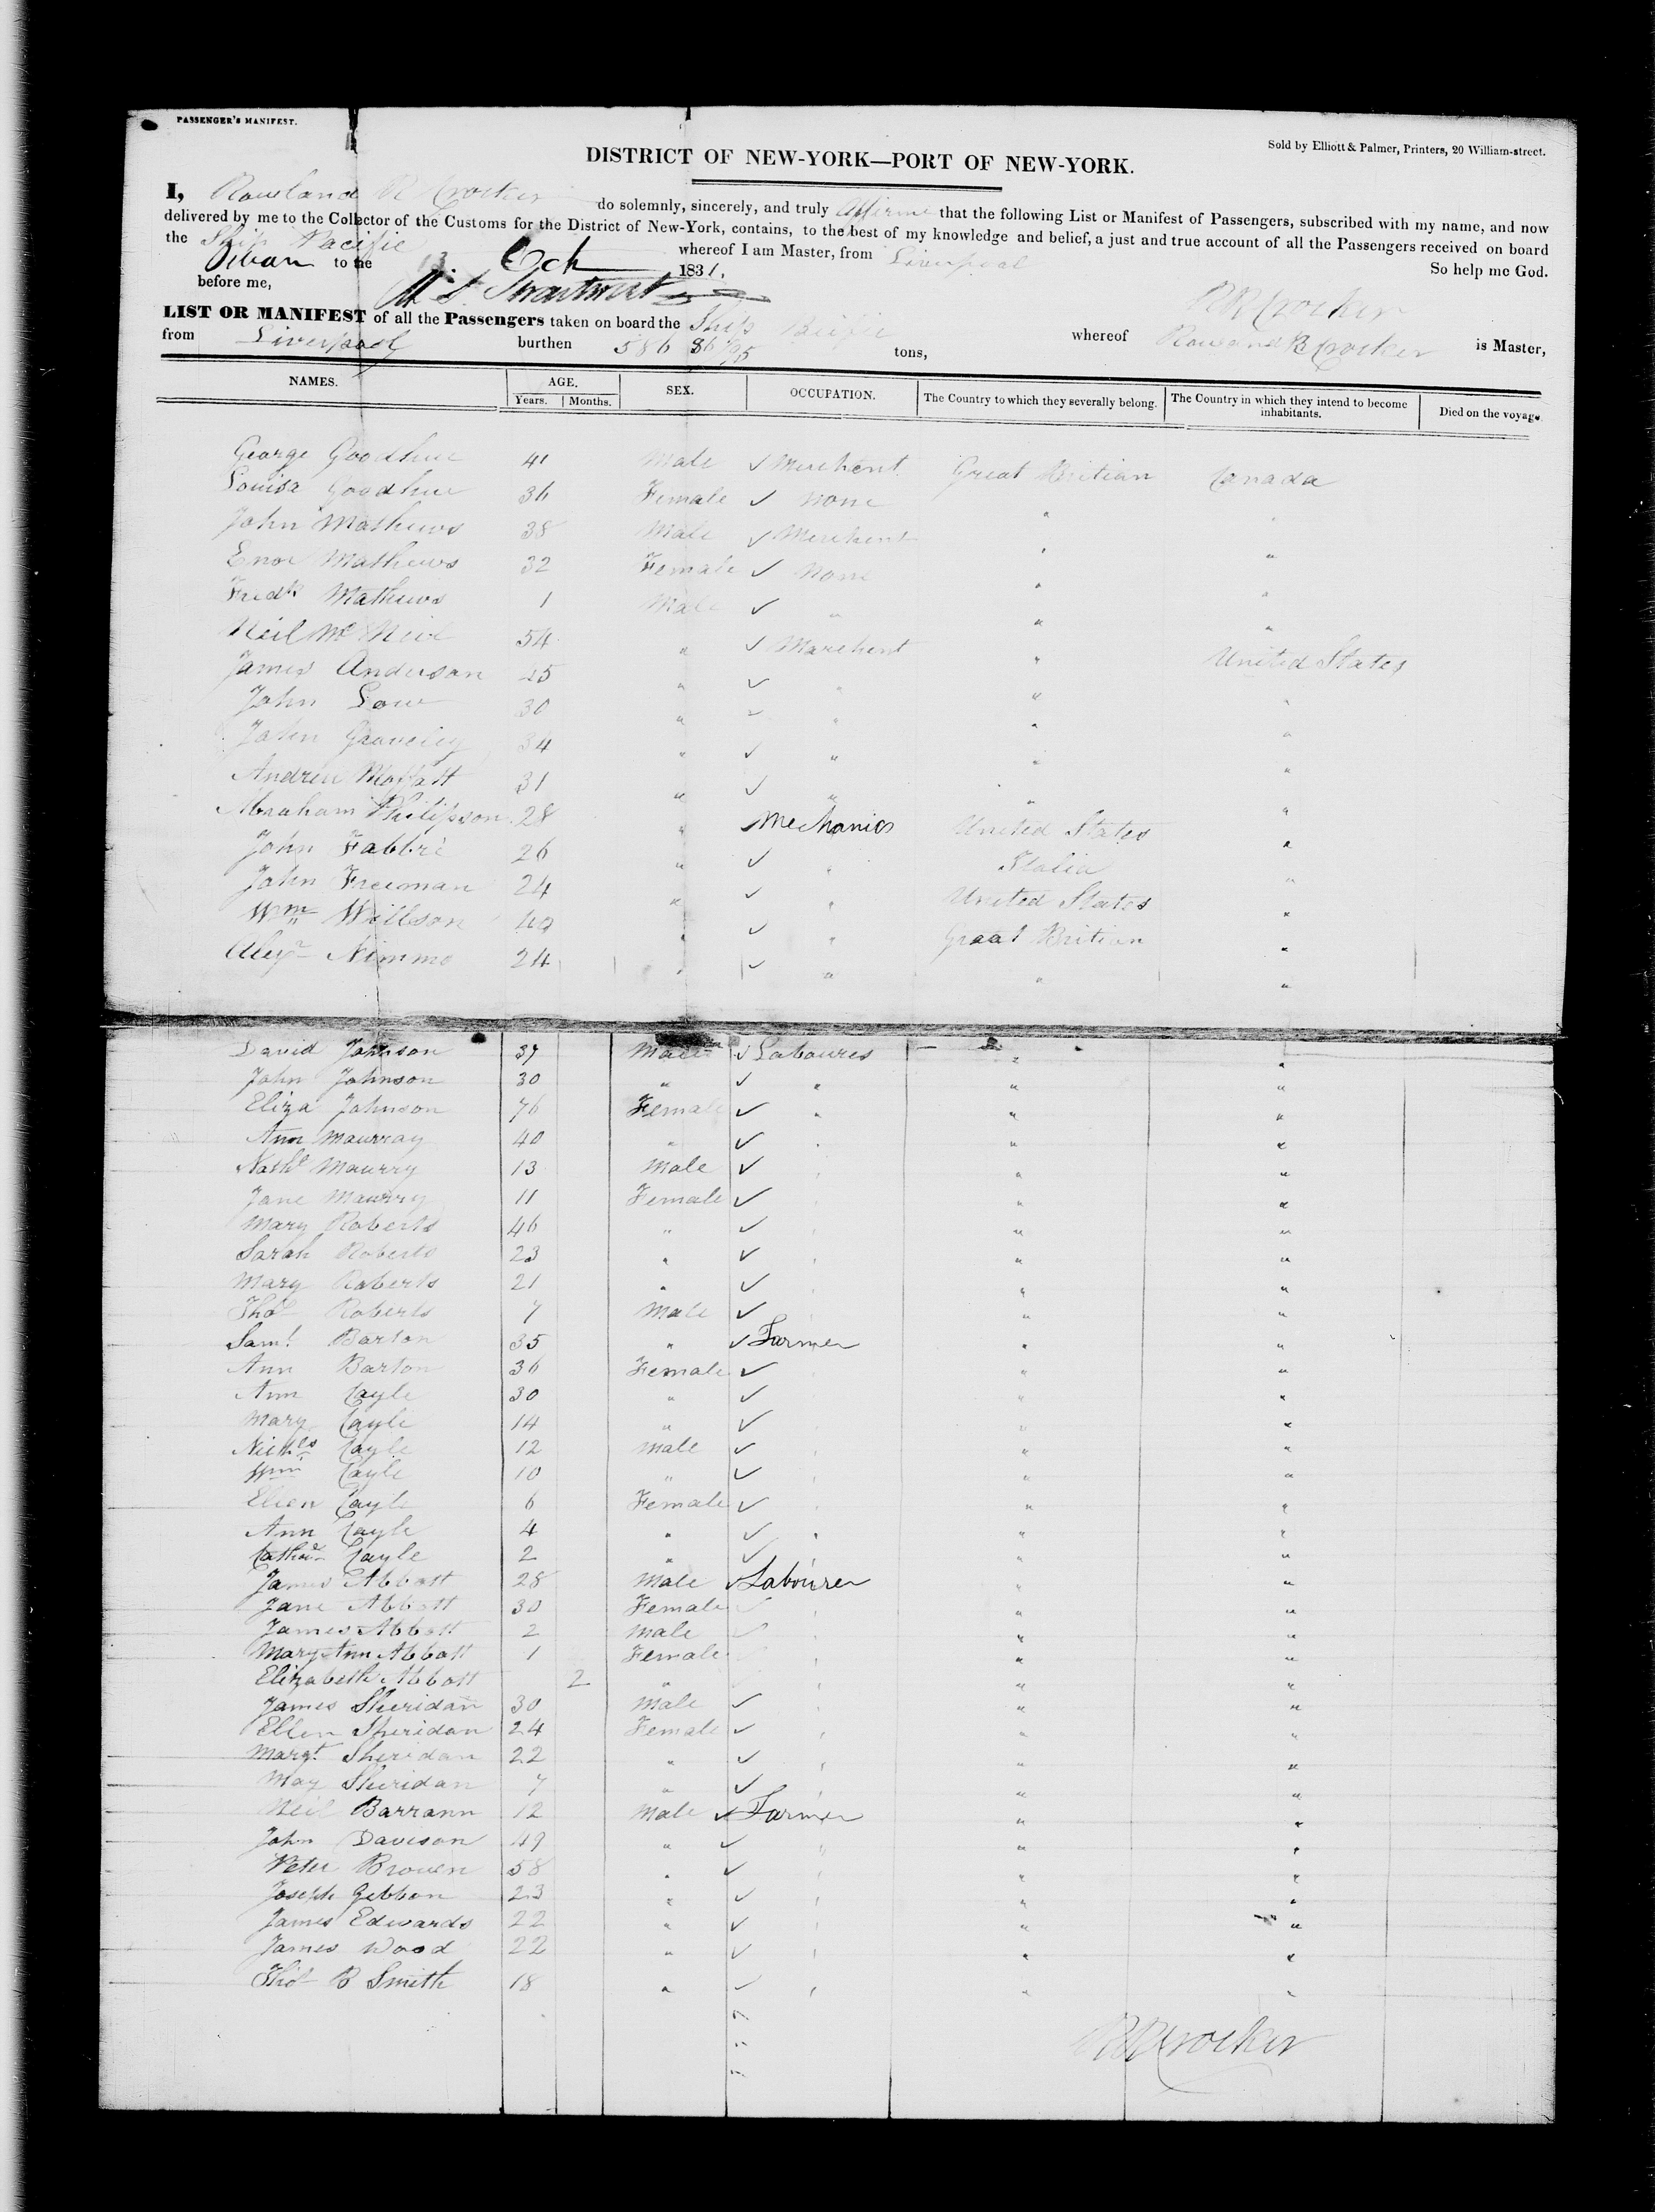 PASSENGER'S MANIFEST.
Sold by Elliott & Palmer, Printers, 20 William-street.
DISTRICT OF NEW-YORK—PORT OF NEW-YORK.
I, Rowland R Crocker do solemnly, sincerely, and truly affirm that the following List or Manifest of Passengers, subscribed with my name, and now
delivered by me to the Collector of the Customs for the District of New-York, contains, to the best of my knowledge and belief, a just and true account of all the Passengers received on board
the Ship Pacific whereof I am Master, from Liverpool
to the 13 Oct 1831. So help me God.
before me,
R R Crocker
LIST OR MANIFEST of all the Passengers taken on board the Ship whereof Rowland R Crocker is Master,
from Liverpool burthen 586 86/95 tons,
NAMES. AGE. SEX. OCCUPATION. The Country to which they severally belong. The Country in which they intend to become inhabitants. Died on the voyage
Years. Months.
George Goodhue 41 Male ✓ Merchent Great Britian Canada
Louisa Goodhue 36 Female ✓ None " "
John Mathews 38 Male ✓ Merchent " "
Mathews 32 Female ✓ None " "
Fredk Mathews 1 Male ✓ " " "
Neil Mc Neil 54 " ✓ Marchent " United States
James Anderson 25 " ✓ " " "
John Low 30 " ✓ " " "
John Graveley 34 " ✓ " " "
Andrew Moffatt 31 " ✓ " " "
Abraham Philipson 28 " Mechanics United States "
John Fabbri 26 " ✓ " Italia "
John Freeman 24 " ✓ " United States "
Wm Willson 40 " ✓ " Graat Britian "
Alexr Nimmo 24 " ✓ " " "
David Johnson 37 Male ✓ Laboures " "
John Johnson 30 " ✓ " " "
Eliza Johnson 76 Female ✓ " " "
Ann Maurray 40 " ✓ " " "
Nathl Maurry 13 Male ✓ " " "
Jane Maurry 11 Female ✓ " " "
Mary Roberts 46 " ✓ " " "
Sarah Roberts 23 " ✓ " " "
Mary Roberts 21 " ✓ " " "
Thos Roberts 7 Male ✓ " " "
Saml Barton 35 " ✓ Farmer " "
Ann Barton 36 Female ✓ " " "
Ann Cayle 30 " ✓ " " "
Mary Cayle 14 " ✓ " " "
Nichls Cayle 12 Male ✓ " " "
Wm Cayle 10 " ✓ " " "
Ellen Cayle 6 Female ✓ " " "
Ann Cayle 4 " ✓ " " "
Cathe Cayle 2 " ✓ " " "
James Abbott 28 Male ✓ Labourer " "
Jane Abbott 30 Female ✓ " " "
James Abbott 2 Male ✓ " " "
Mary Ann Abbott 1 Female " " "
Elizabeth Abbott 2 " " " "
James Sheridan 30 Male ✓ " " "
Ellen Sheridan 24 Female ✓ " " "
Margt Sheridan 22 " ✓ " " "
May Sheridan 7 " ✓ " " "
Neil Barrann 12 Male ✓ Farmer " "
John Davison 49 " ✓ " " "
Peter Brown 58 " ✓ " " "
Joseph Gibbon 23 " ✓ " " "
James Edwards 22 " ✓ " " "
James Wood 22 " ✓ " " "
Thos B Smith 18 " ✓ " " "
R R Crocker